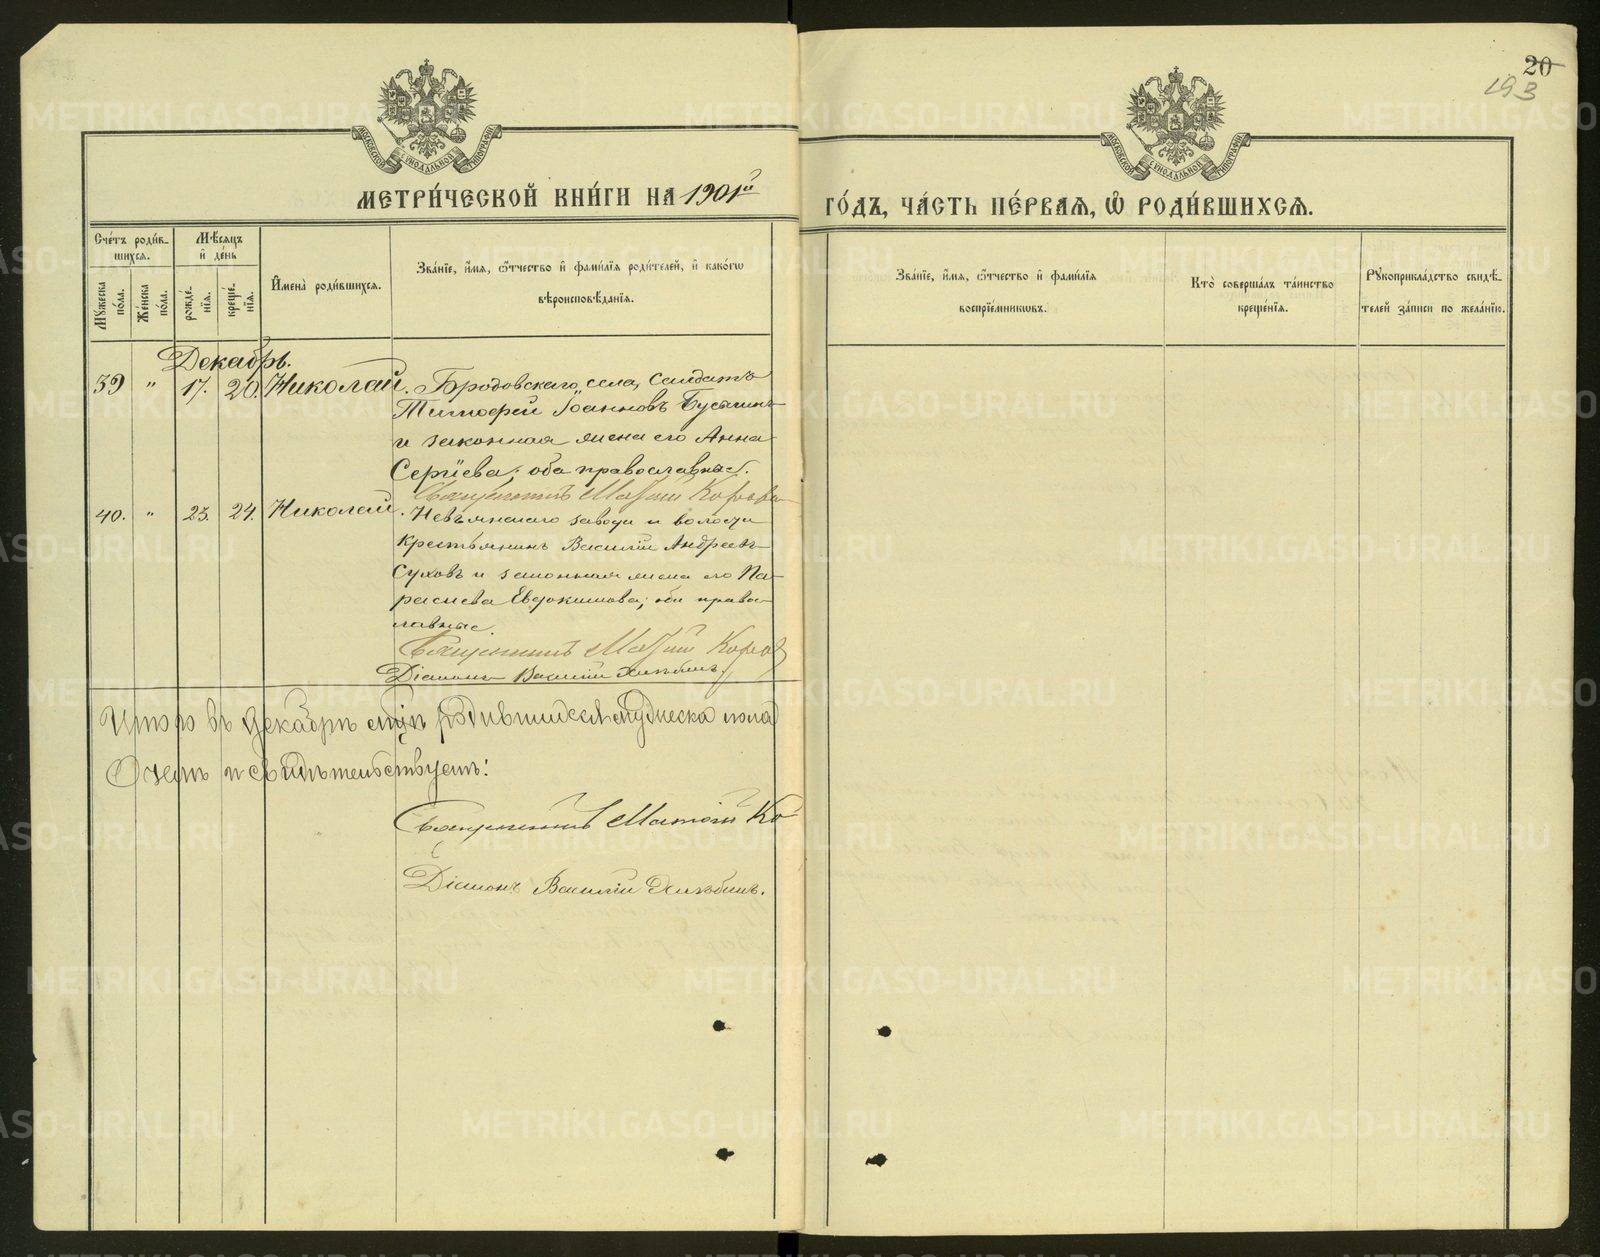 20
193
МОСКОВСКОЙ СѴНОДАЛЬНОЙ ТИПОГРАФІИ
МОСКОВСКОЙ СѴНОДАЛЬНОЙ ТИПОГРАФІИ
МЕТРИ́ЧЕСКОЙ КНИ́ГИ НА 1901й ГО́ДЪ, ЧА́СТЬ ПЕ́РВАЯ, Ѽ РОДИ́ВШИХСЯ.
Сче́тъ роди́в-
шихся.
Мꙋжеска по́ла.
Же́нска по́ла.
Мѣ́сяцъ и҆ де́нь
рожде́-
нїя.
креще́-
нїя.
И҆мена̀ роди́вшихся.
Зва́нїе, и҆́мя, ѻ҆́тчество и҆ фами́лїя роди́телей, и҆ како́гѡ
вѣроисповѣ́данїя.
Зва́нїе, и҆́мя, ѻ҆́тчество и҆ фами́лїя
воспрїе́мникѡвъ.
Кто̀ соверша́лъ та́инство
креще́нїя.
Рꙋкоприкла́дство свидѣ́-
телей за́писи по жела́нїю.
Декабрь.
39 " 17. 20. Николай. Бродовскаго села, солдатъ
Тимофей Іоанновъ
и законная жена его Анна
Сергіева; оба православные.
Священникъ Матѳій
40. " 23. 24. Николай. Невьянскаго завода и волости
крестьянинъ Василій Андреевъ
Суховъ и законная жена его Па-
раскева Евдокимова; оба право-
славные.
Священникъ Матѳій
Діаконъ Василій
Итого въ декабрѣ родившихся мужеска пола
О чемъ и свидѣтельствуемъ:
Священникъ Матѳій Ко
Діаконъ Василій
METRIKI.GASO-URAL.RU